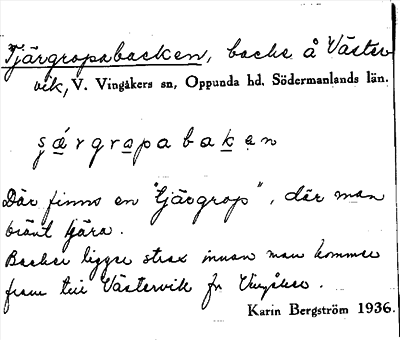 Tjärgropabacken, backe å Väster
vik, V. Vingåkers sn, Oppunda hd, Södermanlands län.
ʂǽrgrapabakən
Där finns en "tjärgrop", där man
bränt tjära.
Backen ligger strax innan man kommer
fram till Västervik fr Vingåker.
Karin Bergström 1936.